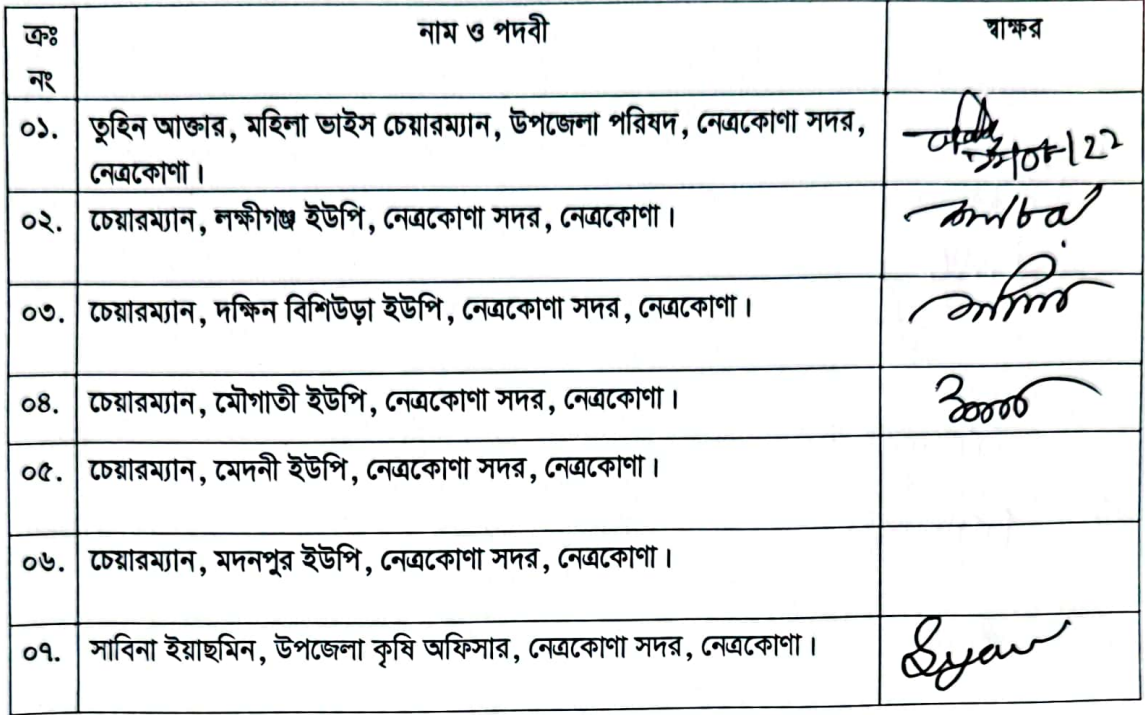 ক্রঃ নাম ও পদবী স্বাক্ষর
নং
০১. তুহিন আক্তার, মহিলা ভাইস চেয়ারম্যান, উপজেলা পরিষদ, নেত্রকোণা সদর,
নেত্রকোণা।
০২. চেয়ারম্যান, লক্ষীগঞ্জ ইউপি, নেত্রকোণা সদর, নেত্রকোণা।
০৩. চেয়ারম্যান, দক্ষিন বিশিউড়া ইউপি, নেত্রকোণা সদর, নেত্রকোণা।
০৪. চেয়ারম্যান, মৌগাতী ইউপি, নেত্রকোণা সদর, নেত্রকোণা।
০৫. চেয়ারম্যান, মেদনী ইউপি, নেত্রকোণা সদর, নেত্রকোণা।
০৬. চেয়ারম্যান, মদনপুর ইউপি, নেত্রকোণা সদর, নেত্রকোণা।
০৭. সাবিনা ইয়াছমিন, উপজেলা কৃষি অফিসার, নেত্রকোণা সদর, নেত্রকোণা।